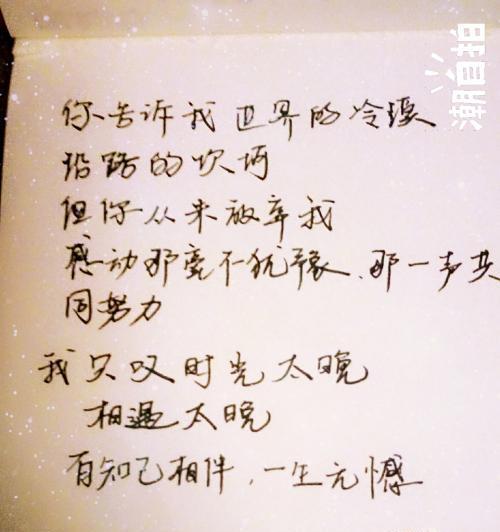 你告诉我世界的冷漠
沿路的坎坷
但你从未放弃我
感动那毫不犹豫、那一声共
同努力
我只叹时光太晚
相遇太晚
有知己相伴,一生无憾
潮自拍